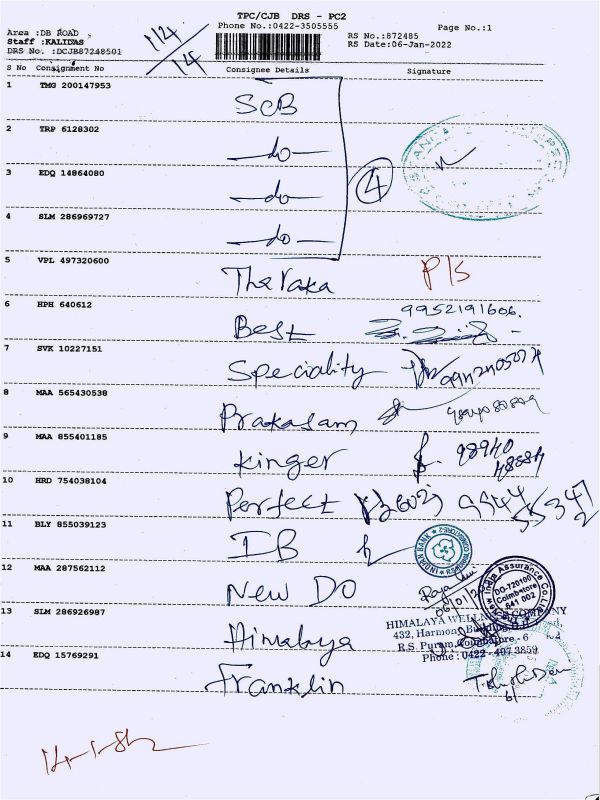 TPC/CJB DRS - PC2
Phone No.:0422-3505555
Page No.:1
Area :DB ROAD
Staff :KALIDAS
DRS No. :DCJB87248501
RS No.:872485
RS Date:06-Jan-2022
1/4
14
S No Consignment No Consignee Details Signature
1 TMG 200147953 SCB
2 TRP 6128302 do
3 EDQ 14864080 do
4 SLM 286969727 do
4
5 VPL 497320600 Theraka P/s
6 HPH 640612 Best 9952191606.
7 SVK 10227151 Speciality
8 MAA 565430538 Prakasam
9 MAA 855401185 Kinger 98940
10 HRD 754038104 Perfect 9944
55347
2
11 BLY 855039123 IB
INDIAN BANK
12 MAA 287562112 New DO
India Assurance Co.
DO-720100
Coimbatore
641 002
13 SLM 286926987 Himalaya
HIMALAYA WELLNESS COMPANY
432, Harmony
R.S. Puram, Coimbatore - 6
Phone : 0422-4973859
14 EDQ 15769291 Franklin